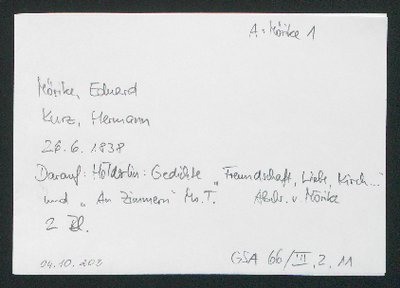 A: Mörike 1
Mörike, Eduard
Kurz, Hermann
26.6.1838
Darauf: Hölderlin: Gedichte „Freundschaft, Liebe, Kirch..."
und „An Zimmern" Ms. T. Abschr. v. Mörike
2 Bl.
04.10.203
GSA 66/III, 2, 11